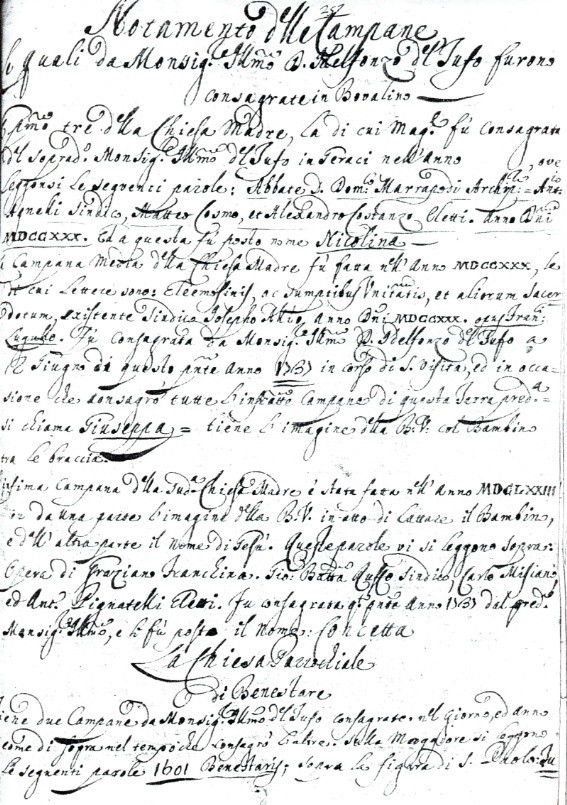 257
Notamento della Campane
quali da Monsig.r Ill.mo D. Idelfonzo del Tufo furono
consagrate in Bovalino
tre della Chiesa Madre, la di cui Mag.re fù consagrata
del soprad.o Monsig.r Ill.mo del Tufo in Geraci nell'Anno , ove
leggonsi le seguenti parole: Abbate D. Dom.co Marrapodi Archip.
Agnelli Sindico, Matteo Cosmo, et Alexandro Costanzo Eletti. Anno Dni
MDCCXXX. Ed à questa fù posto nome Nicolina
Campana Mezza della Chiesa Madre fù fatta nell'Anno MDCCXXX, le
di cui lettere sono: Eleemosinis, ac Sumptibus et aliorum Sacer
dotum, existente Sindico Iosepho Anno Dni MDCCXXX. opus Fran.
Fù consagrata da Monsig.r Ill.mo D. Idelfonzo del Tufo a
Giugno da questo pnte Anno 1737 in corso di S. Visita, ed in occa
sione che consagrò tutte l'infratte Campane di questa Terra pred.a
si chiama Giuseppa = tiene l'imagine della B. V. col Bambino
tra le braccia.
Campana della Sud.a Chiesa Madre è stata fatta nell'Anno MDCLXXIII
da una parte l'imagine della B. V. in atto di lattare il Bambino,
e dell'altra parte il Nome di Gesù. Queste parole vi si leggono sopra:
Opera di Graziano Tranchina. Gio: Batta Ruffo Sindico Carlo Misiano
ed Ant.o Pignatelli Eletti. Fu consagrata q.o pnte Anno 1737 dal pred.o
Monsig.r Ill.mo, e li fù posto il Nome: Concetta
La Chiesa Parrochiale
di Benestare
tiene due Campane da Monsig.r Ill.mo del Tufo consagrate nel giorno, ed anno
come di sopra nel tempo che consagrò l'altre. Nella Maggiore si leggono
le seguenti parole 1601 Benestaris; sopra la figura di S. Paolo: